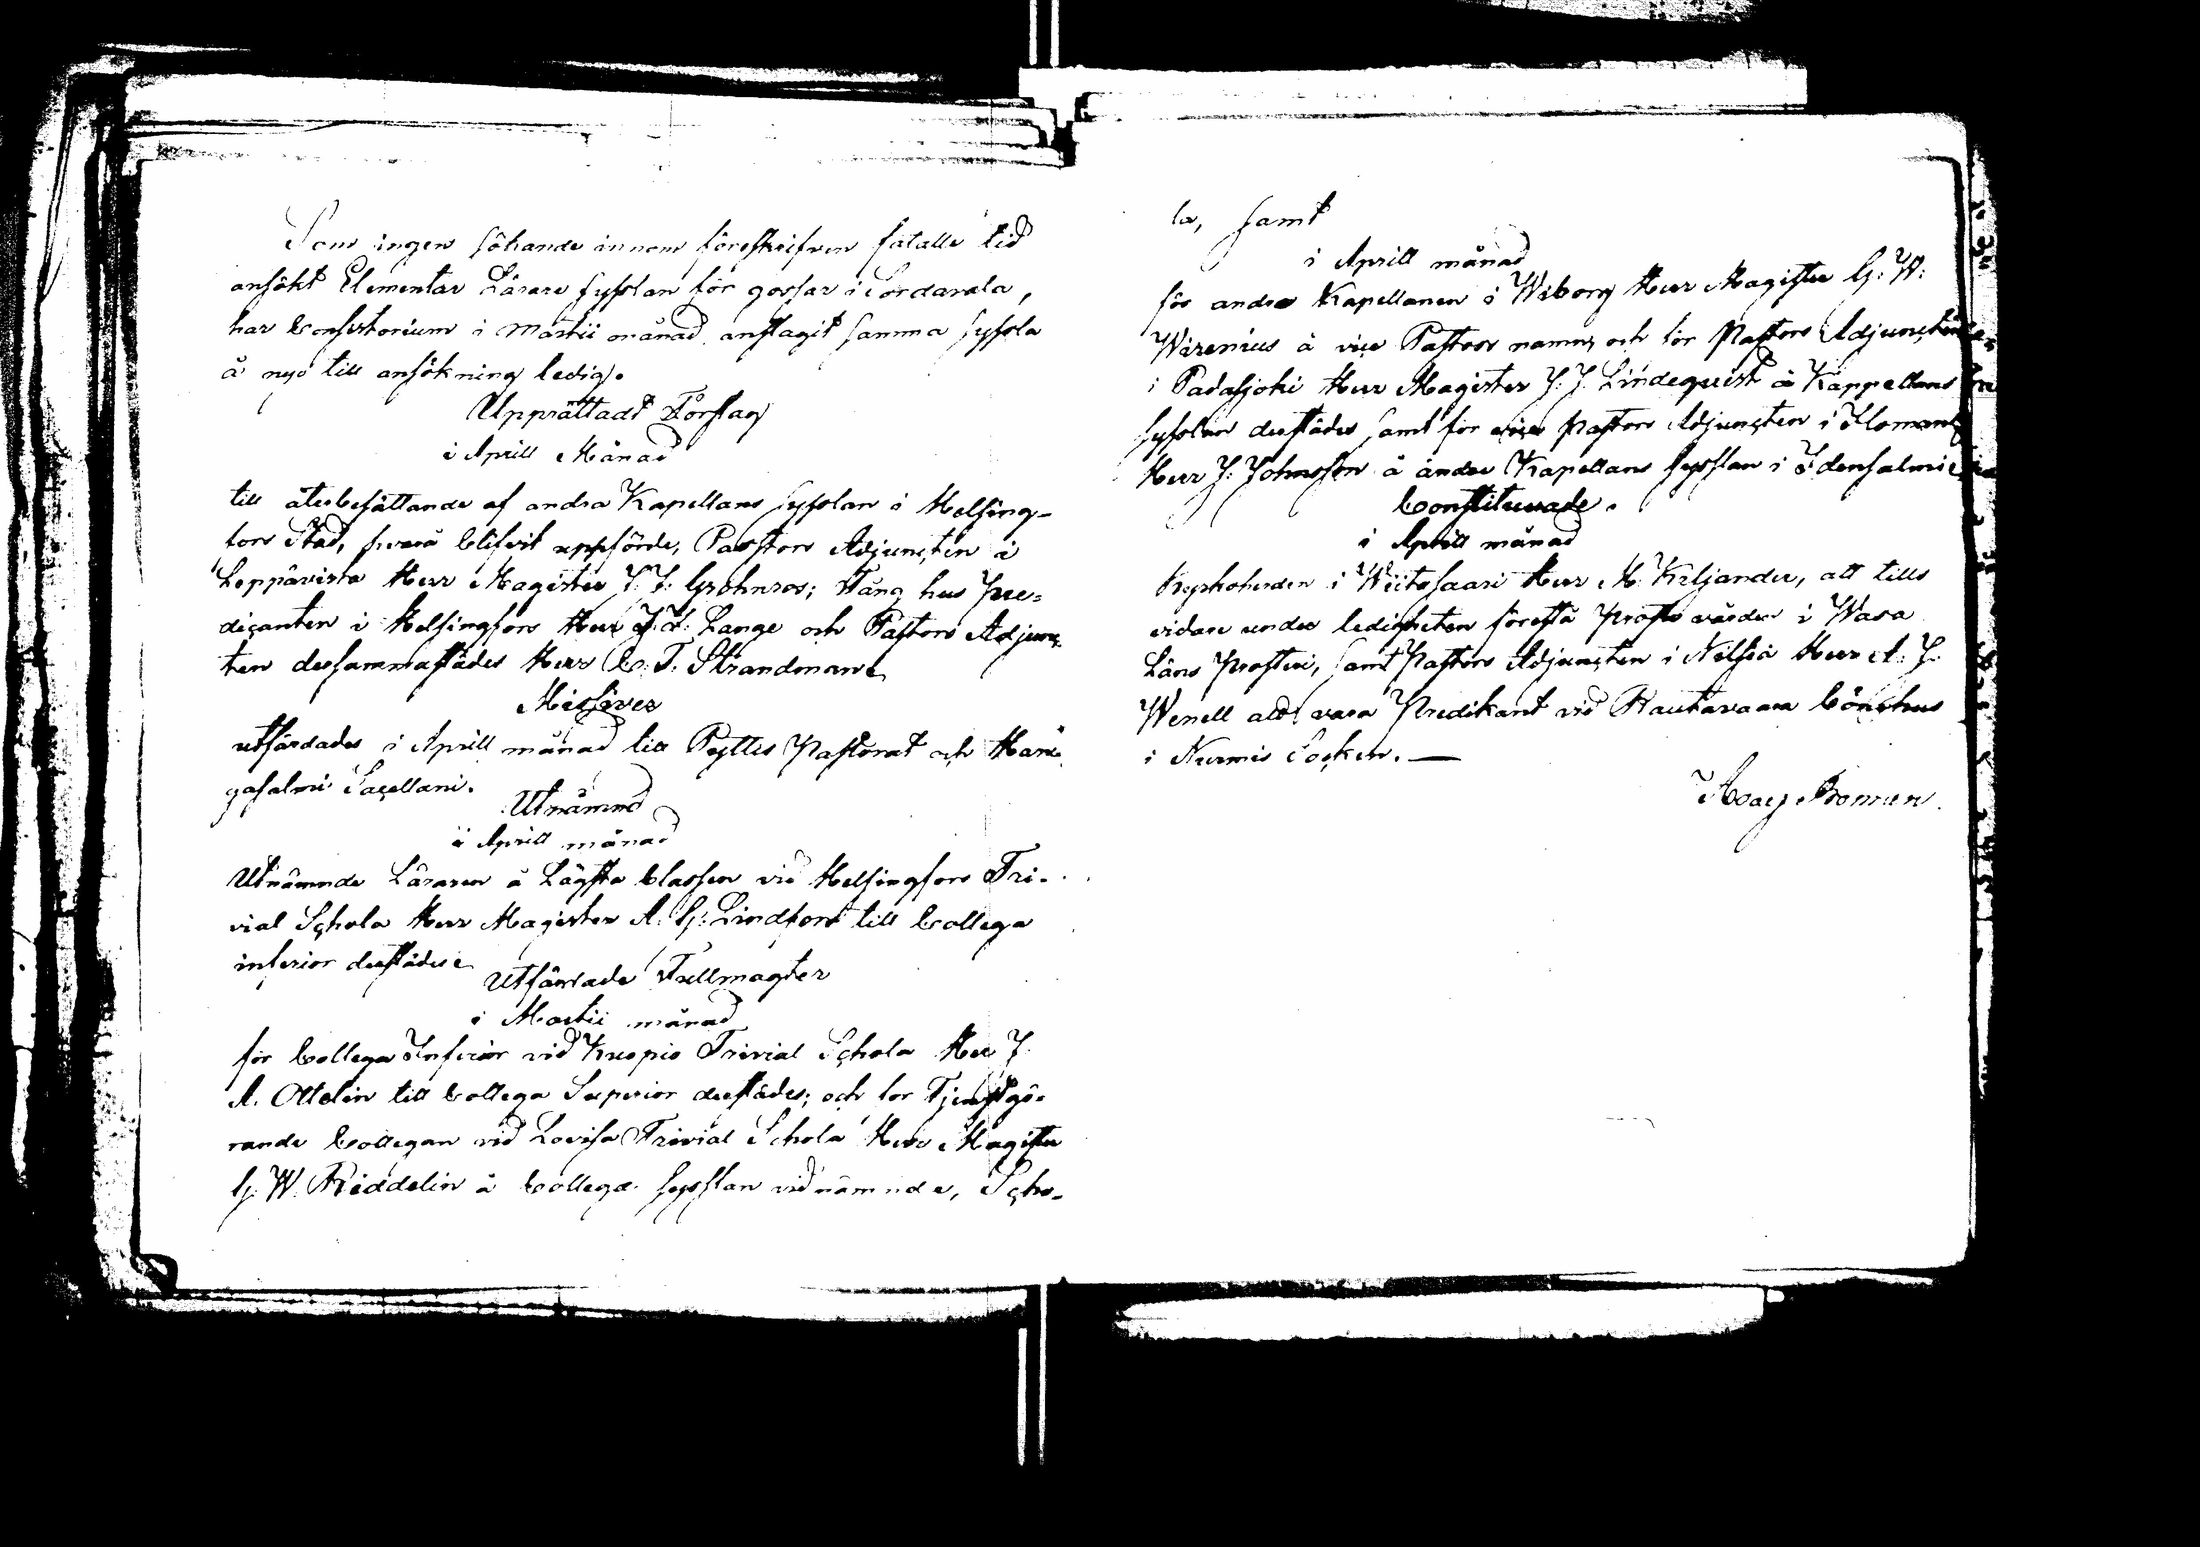 Som ingen sökande innom föreskrifven fatalle tid
ansökt Elementar Lärare sysslan för gossar i Sordavala,
har Consistorium i Martii månad anslagit samma syssla
å nyo till ansökning ledig.
Upprättadt Förslag
i Aprill Månad
till återbesättande af andra Kapellans sysslan i Helsing-
fors Stad, hvarå blifvit uppförde, Pastors Adjuncten i
Leppävirta Herr Magister J. F. Gröhnros; Fång hus Pre-
dicanten i Helsingfors Herr J. F. Lange och Pastors Adjunc
ten dersammastädes Herr C. T. Strandman
Missiver
utfärdades i Aprill månad till Pyttis Pastorat och Han
gasalmi Sacellani.
Utnämnd
i Aprill månad
Utnämnde Läraren å Lägsta Classen vid Helsingfors Tri-
vial Schola Herr Magister A. G. Lindfors till Collega
inferior derstädes
Utfärdade Fullmagter
i Martii månad
för Collega Inferior vid Kuopio Trivial Schola Herr J.
A. Ottelin till Collega Superior derstädes; och for Tjenstgö-
rande Collegan vid Lovisa Trivial Schola Herr Magister
G. W. Riddelin å Collega sysslan vid nämnde, Scho-
la, samt
i Aprill månad
för andra Kapellanen i Wiborg Herr Magister G: W:
Wirenius å vice Pastors namn, och för Pastors Adjuncten
i Padasjoki Herr Magister J. J. Lindequist å Kappellans
sysslan derstädes samt för vice Pastors Adjuncten i Ilomants
Herr J. Johnsson å andra Kapellans sysslan i Idensalmi
Constituerade.
i Aprill månad
Kyrkoherden i Wiitasaari Herr M. Kiljander, att tills
vidare under ledigheten förestå Prosts vården i Wasa
Läns Prosteri, samt Pastors Adjuncten i Nilsiä Herr A. J.
Wenell att vara Predikant vid Rautavaara Bönehus
i Nurmis Socken. —
Boman.